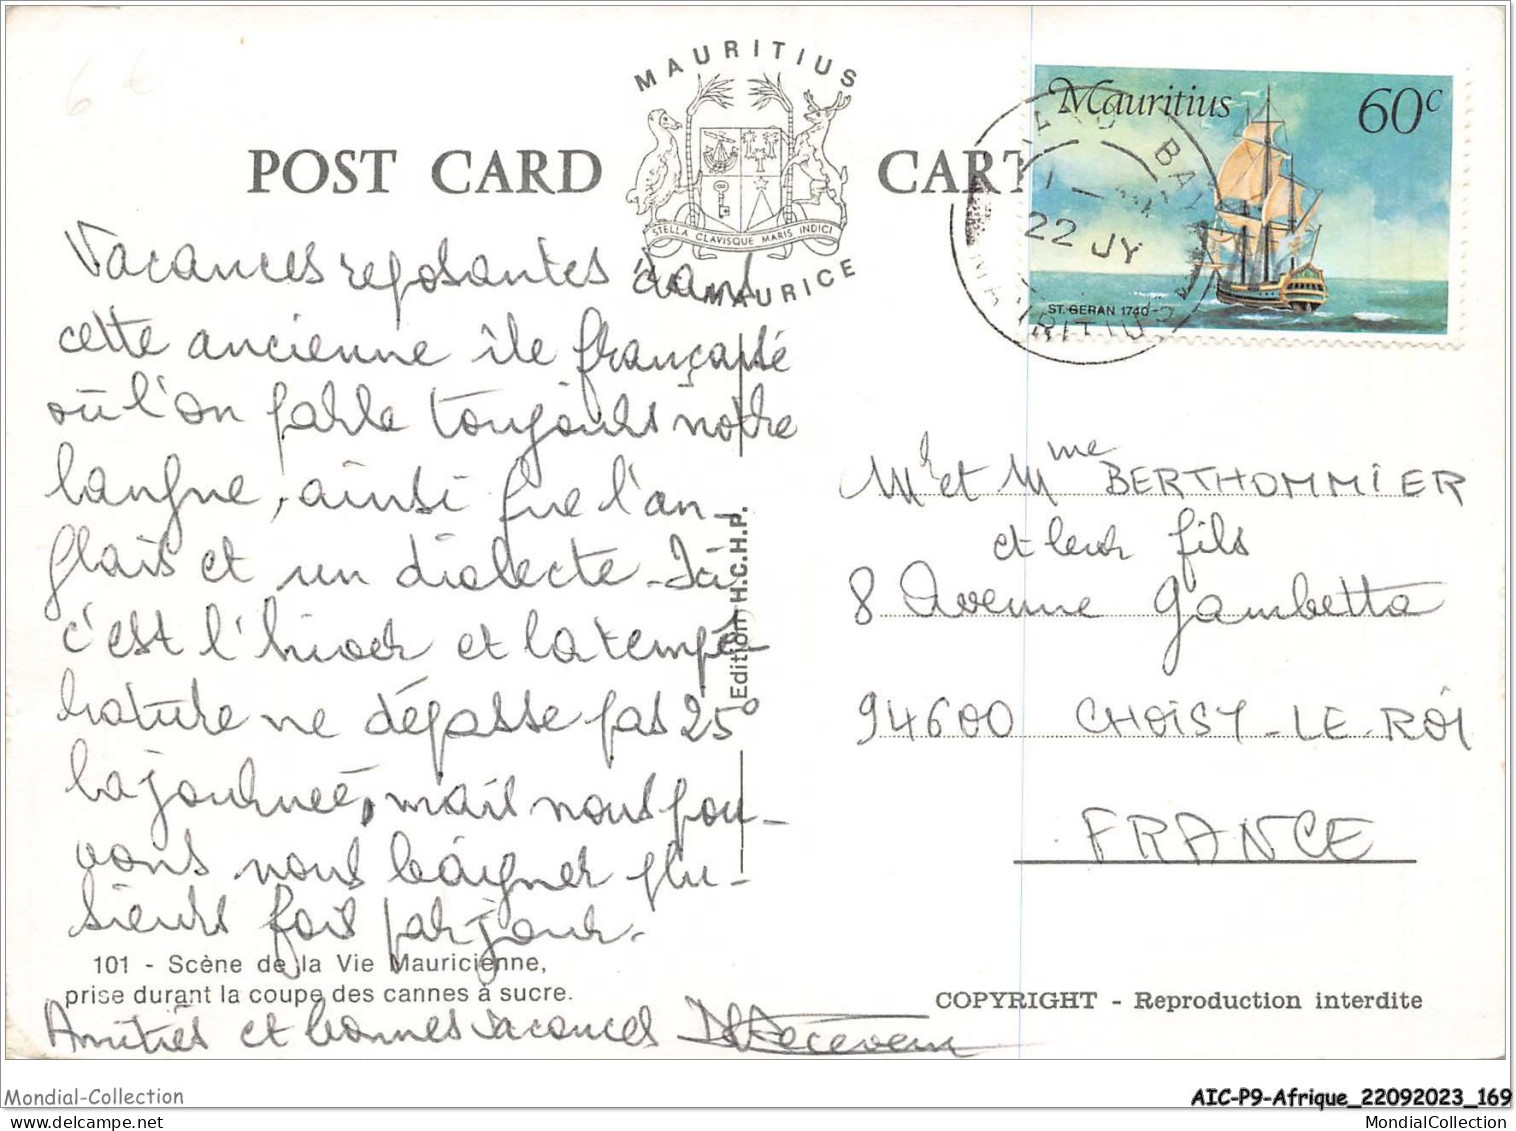 6 €
MAURITIUS
POST CARD
CART
STELLA CLAVISQUE MARIS INDICI
MAURICE
Mauritius 60c
ST. GERAN 1740
BAY
22 JY
MAURITIUS
Vacances reposantes dans
cette ancienne île française
où l'on parle toujours notre
langue, ainsi que l'an-
glais et un dialecte - Ici
c'est l'hiver et la tempé-
rature ne dépasse pas 25°
la journée, mais nous pou-
vons nous baigner plu-
sieurs fois par jour.
Amitiés et bonnes vacances
Mr et Mme BERTHOMMIER
et leur fils
8 Avenue Gambetta
94600 CHOISY-LE-ROI
FRANCE
Edition H.C.H.P.
101 - Scène de la Vie Mauricienne,
prise durant la coupe des cannes à sucre.
COPYRIGHT - Reproduction interdite
Mondial-Collection
AIC-P9-Afrique_22092023_169
MondialCollection